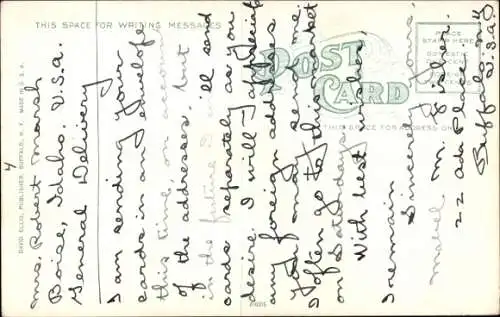 THIS SPACE FOR WRITING MESSAGES
POST
CARD
PLACE
STAMP HERE
DOMESTIC
THIS SPACE FOR ADDRESS ONLY
DAVID ELLIS, PUBLISHER, BUFFALO, N. Y. MADE IN U. S. A.
Mrs. Robert Marsh
Boise, Idaho. U.S.A.
General Delivery
I am sending your
cards in an envelope
this time, on account
of the addresses. But
in the future I will send
cards separately as you
desire. I will appreciate
any foreign addresses
you may send me.
I often go to this market
on Saturdays.
With best wishes,
I remain
Sincerely yours,
Mabel M. Fisher.
22 Ada Place
Buffalo, N.Y.
U.S.A.